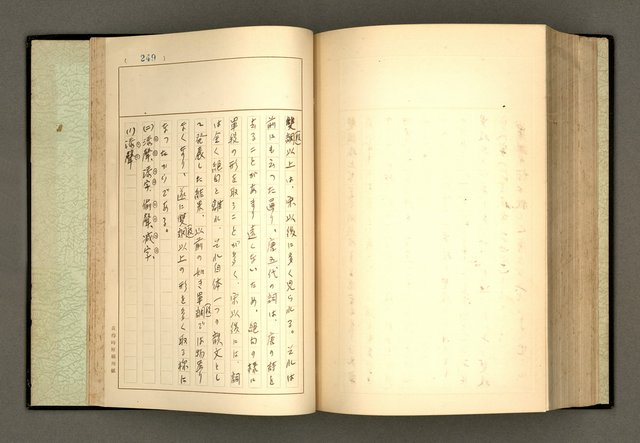 ( 249 )
雙調以上は、宋以後に多く見られる。それは
前にも云つた通り、唐五代の詞は、唐の詩を
去ることがあまり遠しないため、絶句の様に
単段の形を取ることが多く、宋以後には、詞
は全く絶句と離れ、それ自体一つの韻文とし
て発展した結果、以前の如き単調では物足り
なくなり、遂に雙調以上の形を多く取る様に
なつたからである。
(二) 添聲 添字 偸聲 減字
(1) 添聲